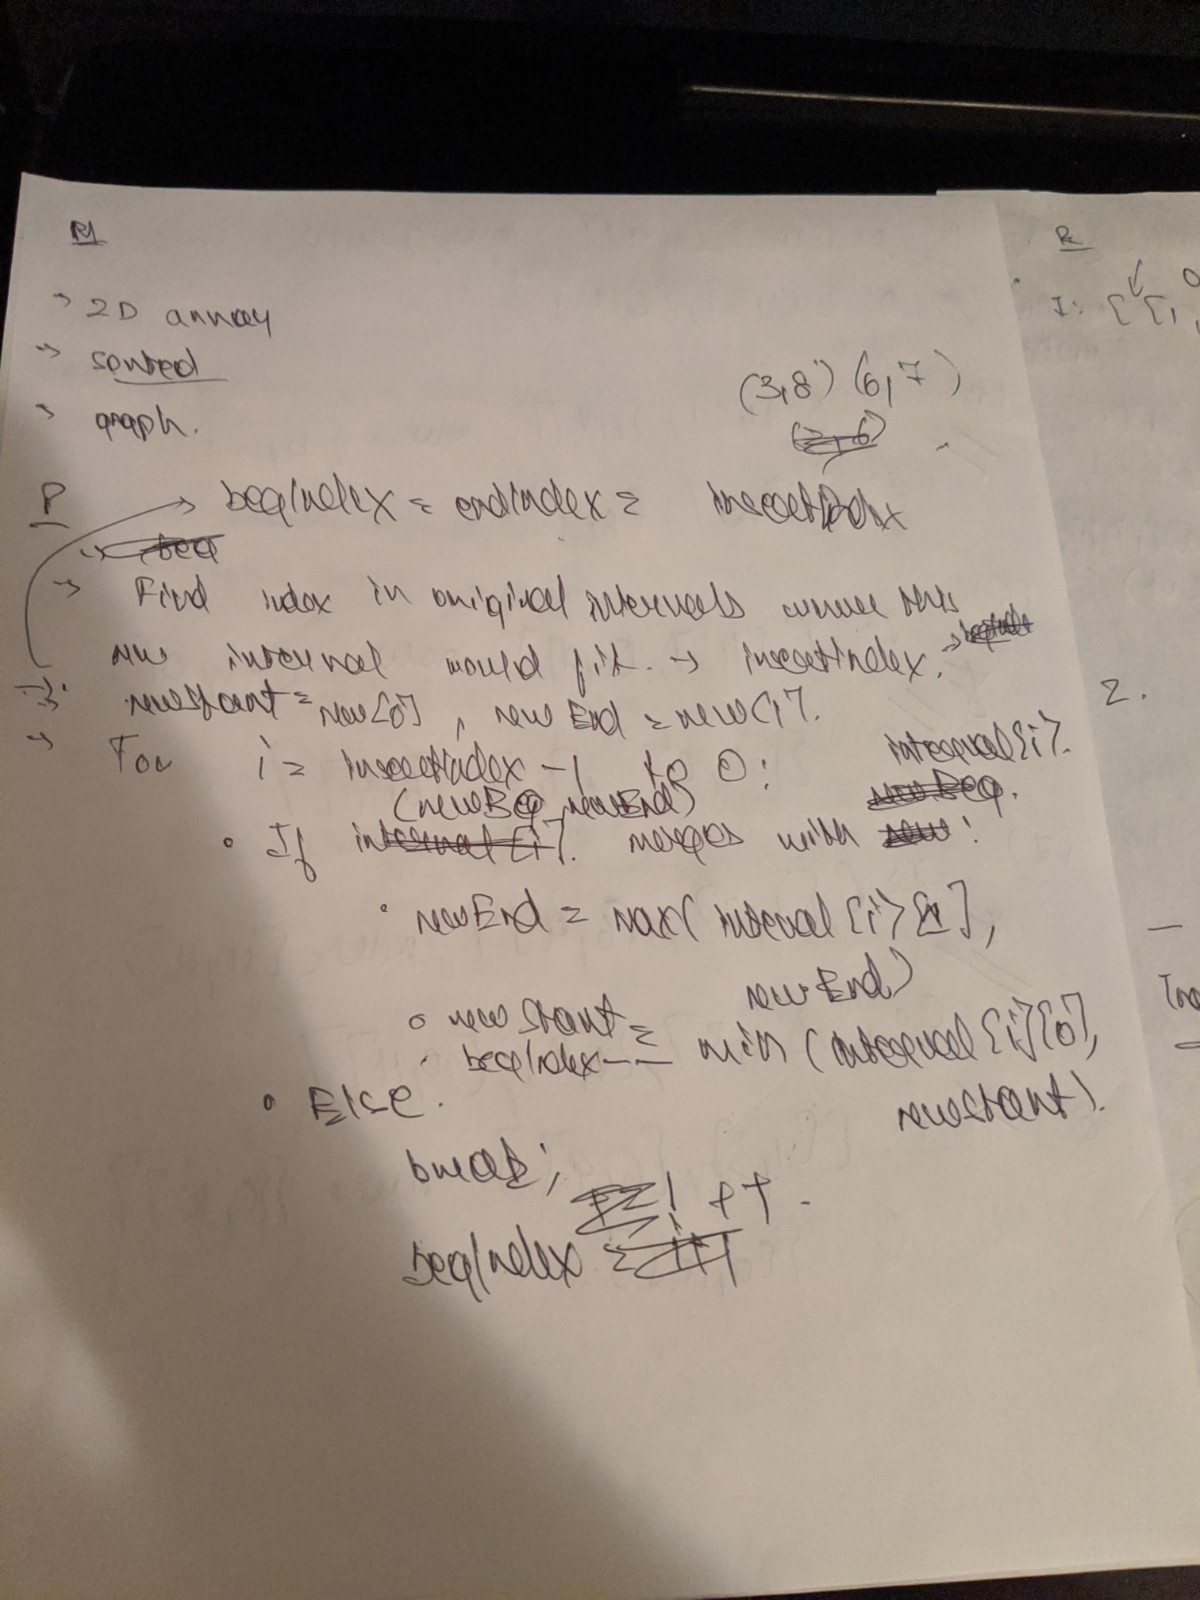 → 2D array
→ sorted
→ graph.
(3,8) (6,7)
P
→ begIndex = endIndex = insertIndex
→ Find index in original intervals where this
new interval would fit. → insertIndex.
→ newStart = new[0], newEnd = new[1].
→ For i = insertIndex - 1 to 0:
interval[i].
(newBeg, newEnd)
• If merges with :
• newEnd = max(interval[i][1],
newEnd)
• newStart =
min(interval[i][0],
• begIndex--
newStart).
• Else.
break;
begIndex ++.
I: [[1,
2.